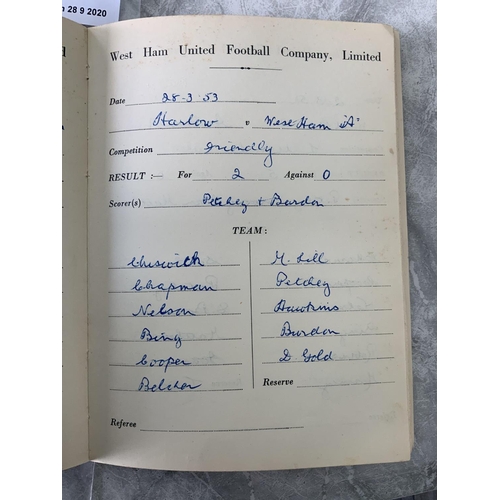 28 9 2020
West Ham United Football Company, Limited
Date 28-3-53
Harlow v West Ham "A"
Competition Friendly
RESULT :— For 2 Against 0
Scorer(s) Petchey + Burdon
TEAM :
Chiswick M. Lill
Chapman Petchey
Nelson Hawkins
Bing Burdon
Cooper D. Gold
Belcher Reserve
Referee